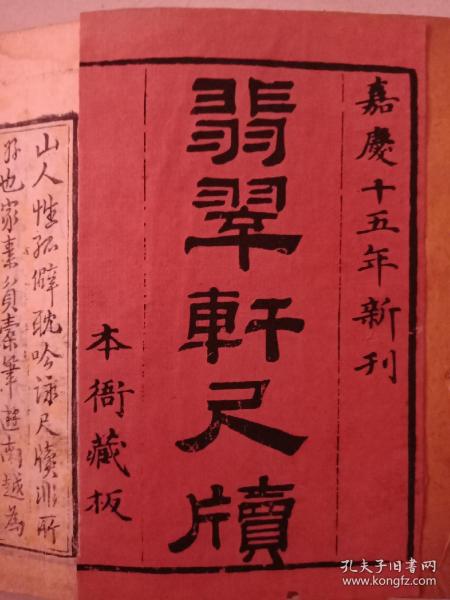 嘉慶十五年新刊
翡翠軒尺牘
本衙藏板
山人性孤僻耽吟詠尺牘非所
好也家素貧橐筆遊南越為
孔夫子旧书网
www.kongfz.com